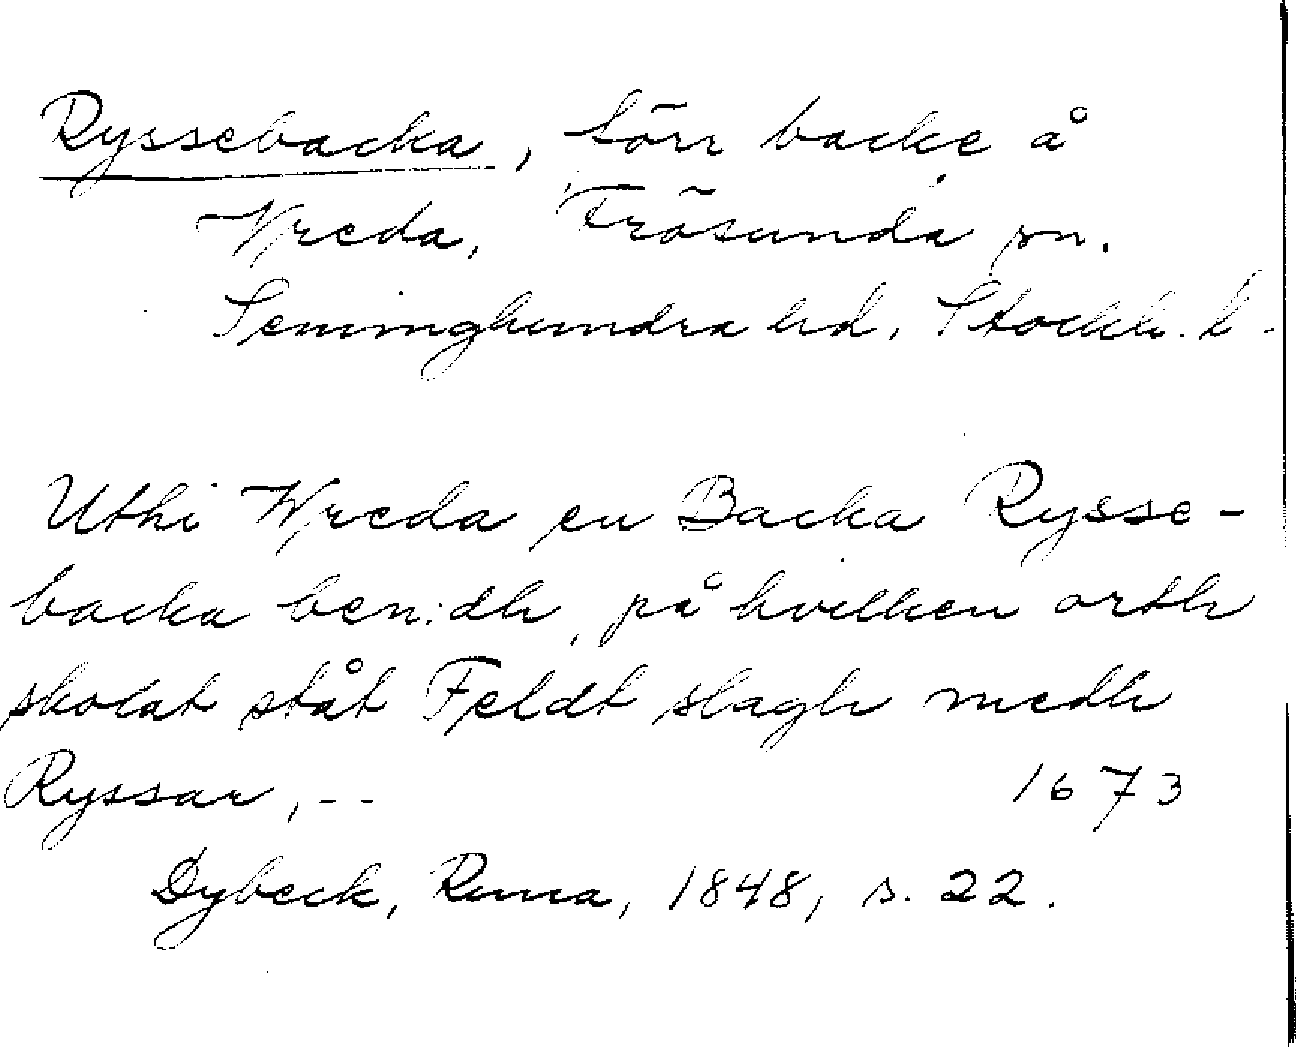 Ryssebacka, torr backe å
Vreda, Frösunda sn.
Seminghundra hd. Stockh. l.
Uthi Wreda en Backa Rysse-
backa ben:dh, på hvilken orth
skolat ståt Feldt slagh medh
Ryssar, -- 1673
Dybeck, Runa, 1848, s. 22.